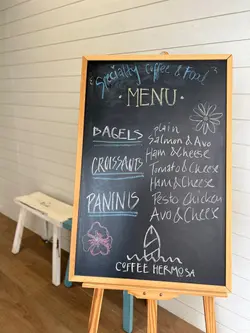 Specialty Coffee & Food
MENU
BAGELS plain
Salmon & Avo
Ham & Cheese
CROISSANTS Tomato & Cheese
Ham & Cheese
PANINIS Pesto Chicken
Avo & Chees
COFFEE HERMOSA